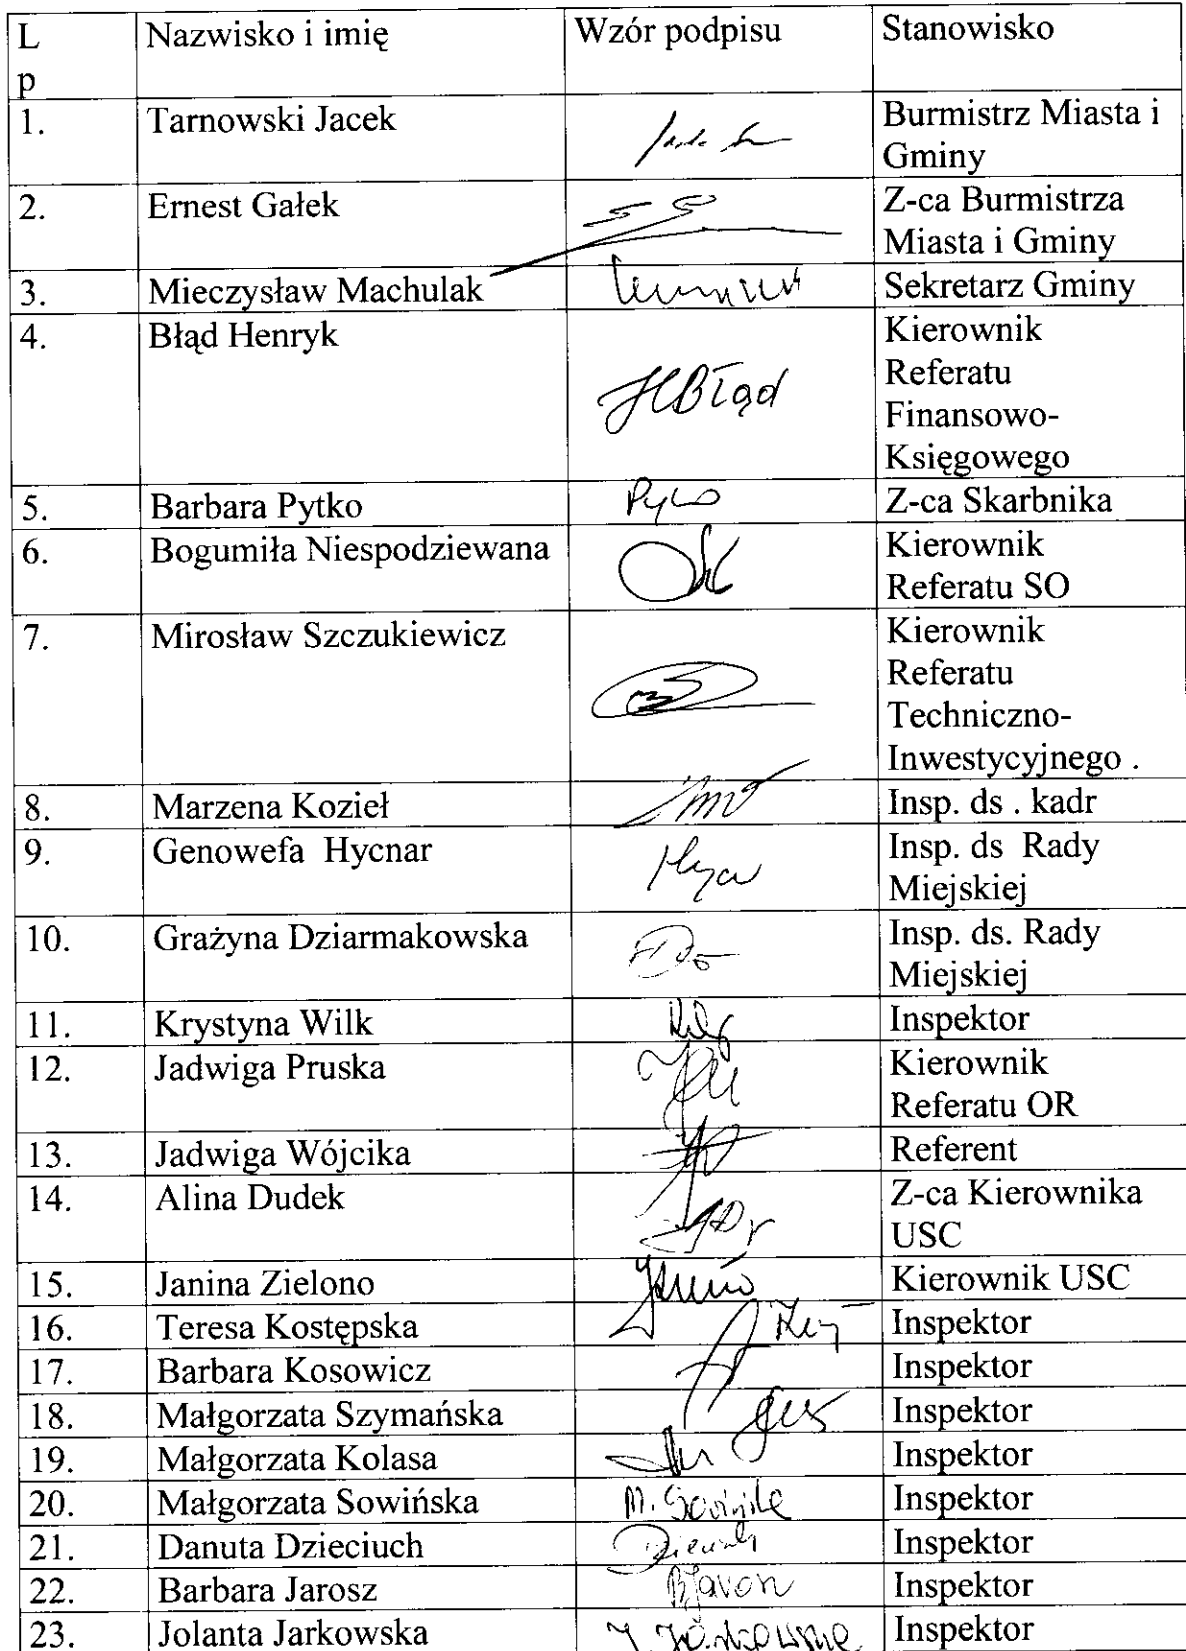 L
p
Nazwisko i imię
Wzór podpisu
Stanowisko
1.
Tarnowski Jacek
Burmistrz Miasta i
Gminy
2.
Ernest Gałek
Z-ca Burmistrza
Miasta i Gminy
3.
Mieczysław Machulak
Sekretarz Gminy
4.
Błąd Henryk
HBłąd
Kierownik
Referatu
Finansowo-
Księgowego
5.
Barbara Pytko
Z-ca Skarbnika
6.
Bogumiła Niespodziewana
Kierownik
Referatu SO
7.
Mirosław Szczukiewicz
Kierownik
Referatu
Techniczno-
Inwestycyjnego .
8.
Marzena Kozieł
Insp. ds . kadr
9.
Genowefa Hycnar
Insp. ds Rady
Miejskiej
10.
Grażyna Dziarmakowska
Insp. ds. Rady
Miejskiej
11.
Krystyna Wilk
Inspektor
12.
Jadwiga Pruska
Kierownik
Referatu OR
13.
Jadwiga Wójcika
Referent
14.
Alina Dudek
Z-ca Kierownika
USC
15.
Janina Zielono
Kierownik USC
16.
Teresa Kostępska
Inspektor
17.
Barbara Kosowicz
Inspektor
18.
Małgorzata Szymańska
Inspektor
19.
Małgorzata Kolasa
Inspektor
20.
Małgorzata Sowińska
Inspektor
21.
Danuta Dzieciuch
Inspektor
22.
Barbara Jarosz
Inspektor
23.
Jolanta Jarkowska
Inspektor